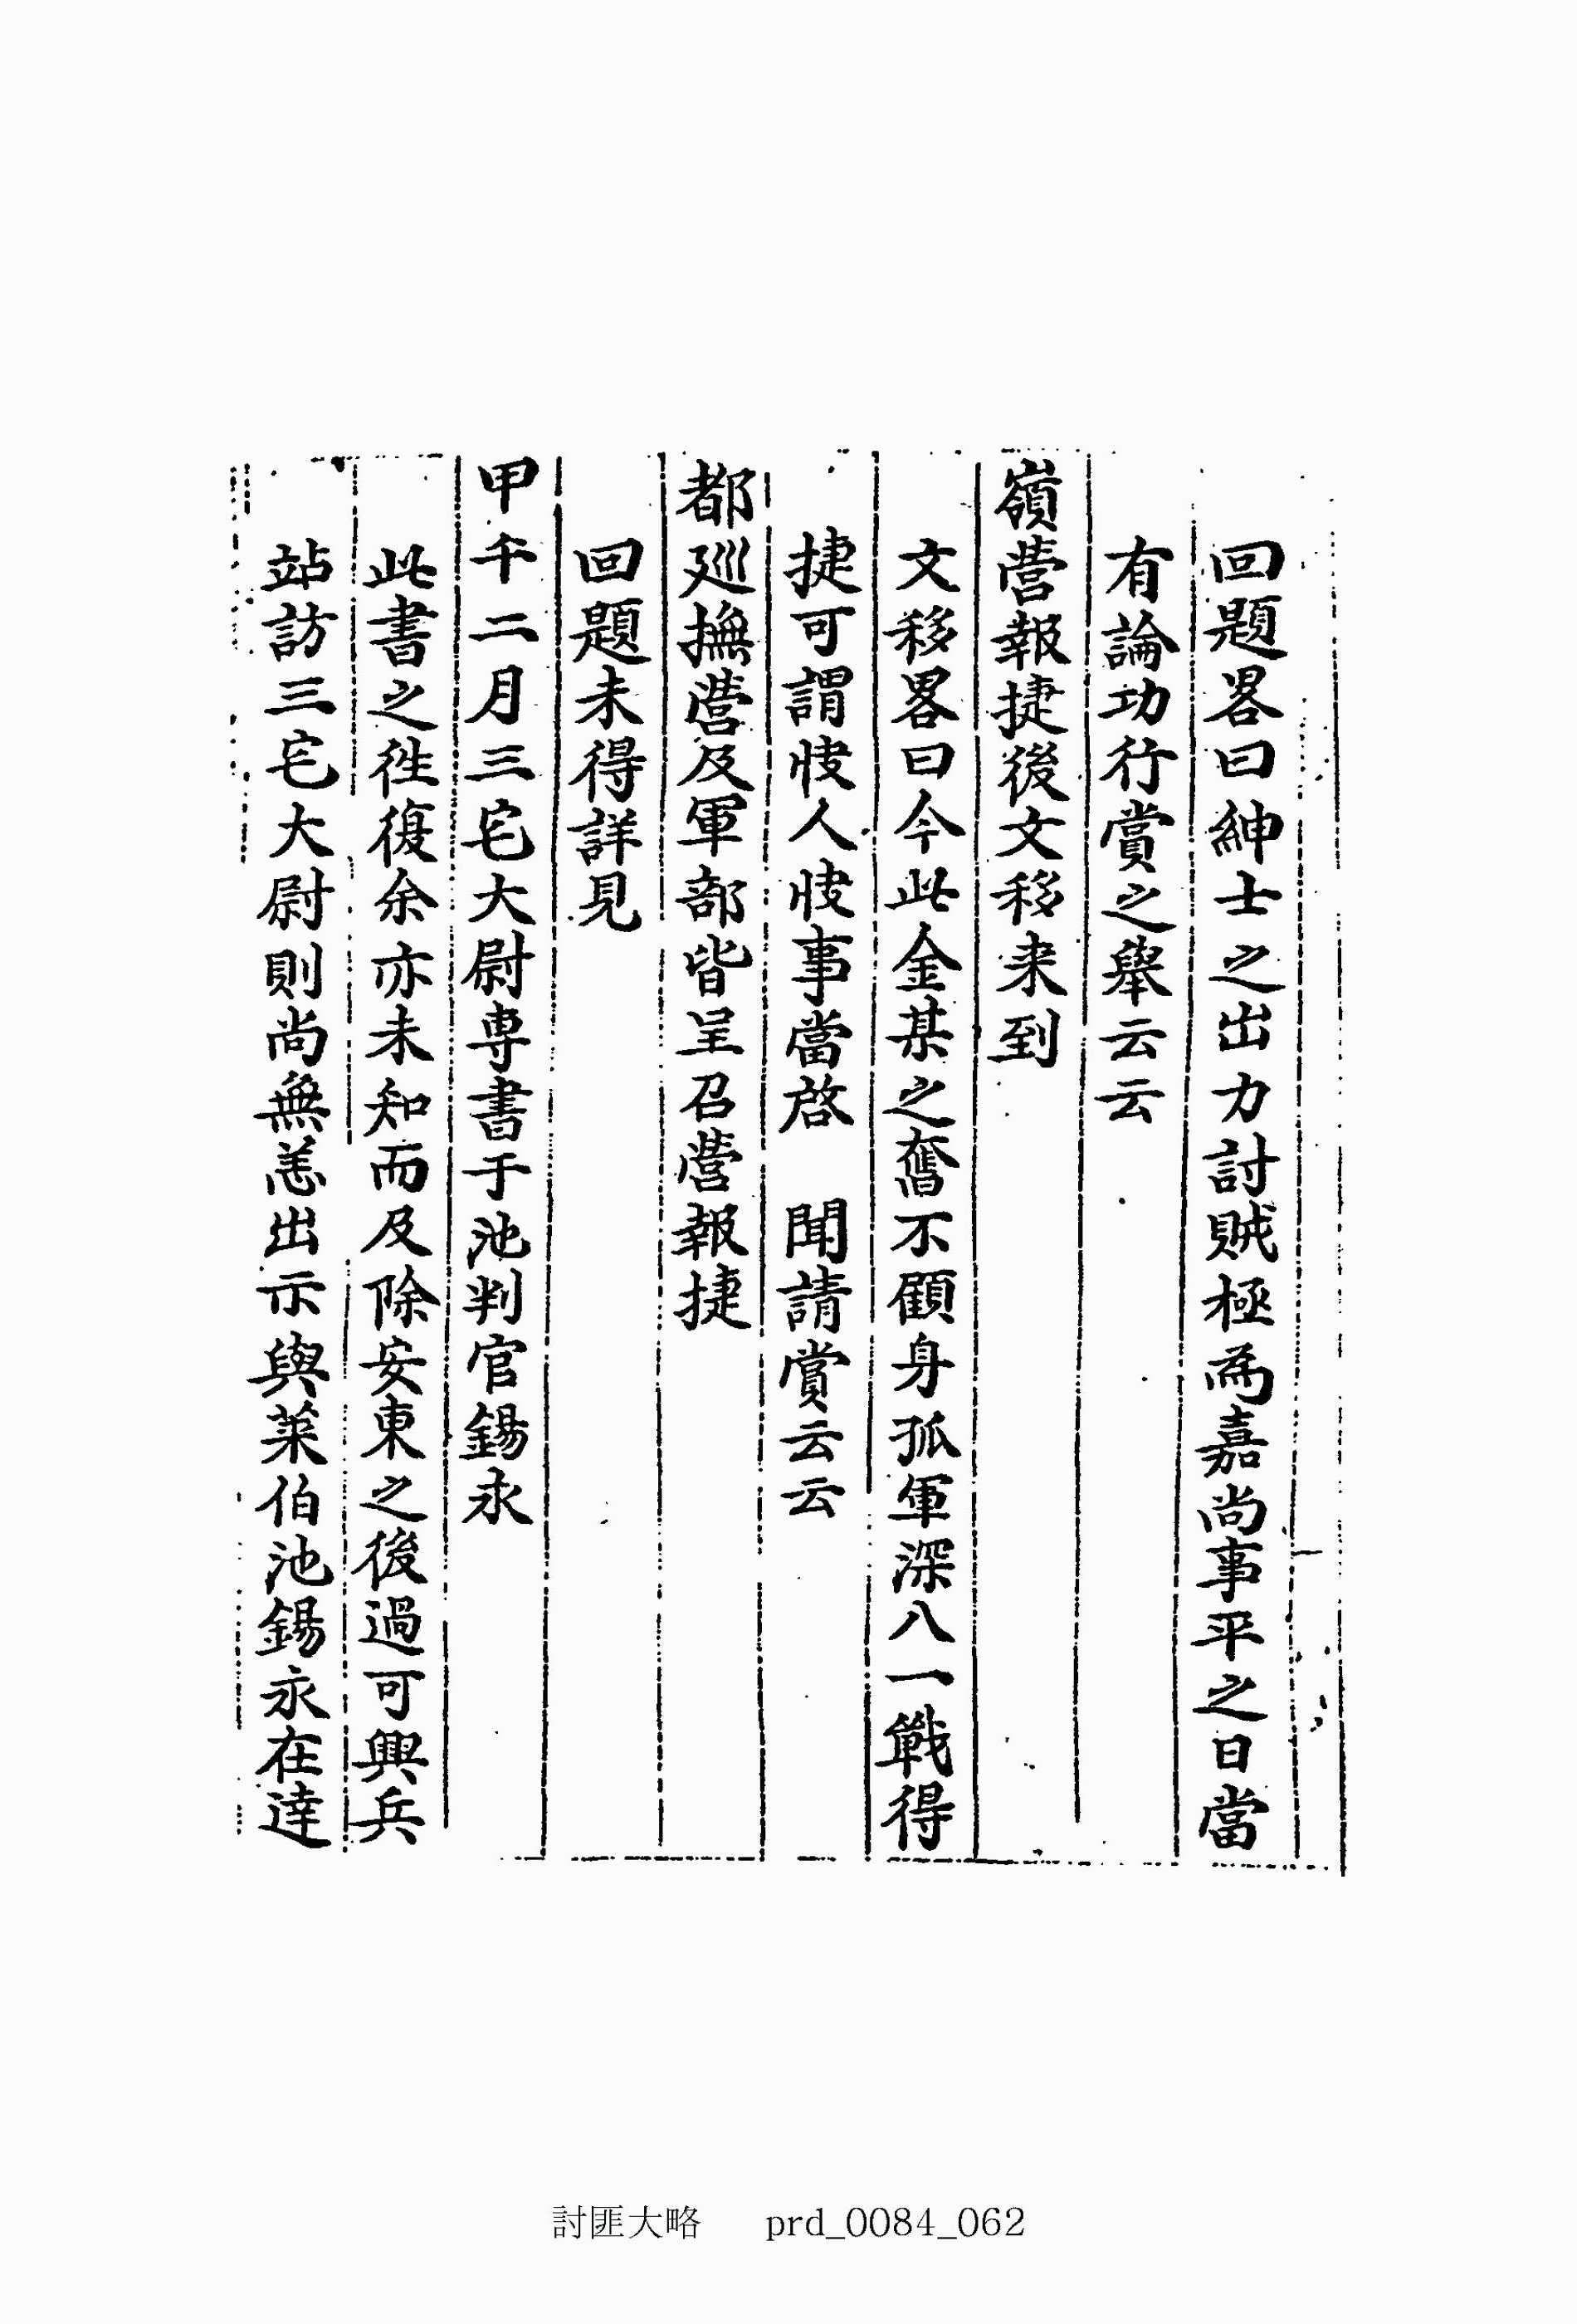 回題畧曰紳士之出力討賊極爲嘉尚事平之日當
有論功行賞之擧云云
嶺營報捷後文移来到
文移畧曰今此金某之奮不顧身孤軍深入一戰得
捷可謂快人快事當啓 聞請賞云云
都廵撫營及軍部皆呈召營報捷
回題未得詳見
甲午二月三宅大尉専書于池判官錫永
此書之徃復余亦未知而及除安東之後過可興兵
站訪三宅大尉則尚無恙出示與萊伯池錫永在達
討匪大略 prd_0084_062